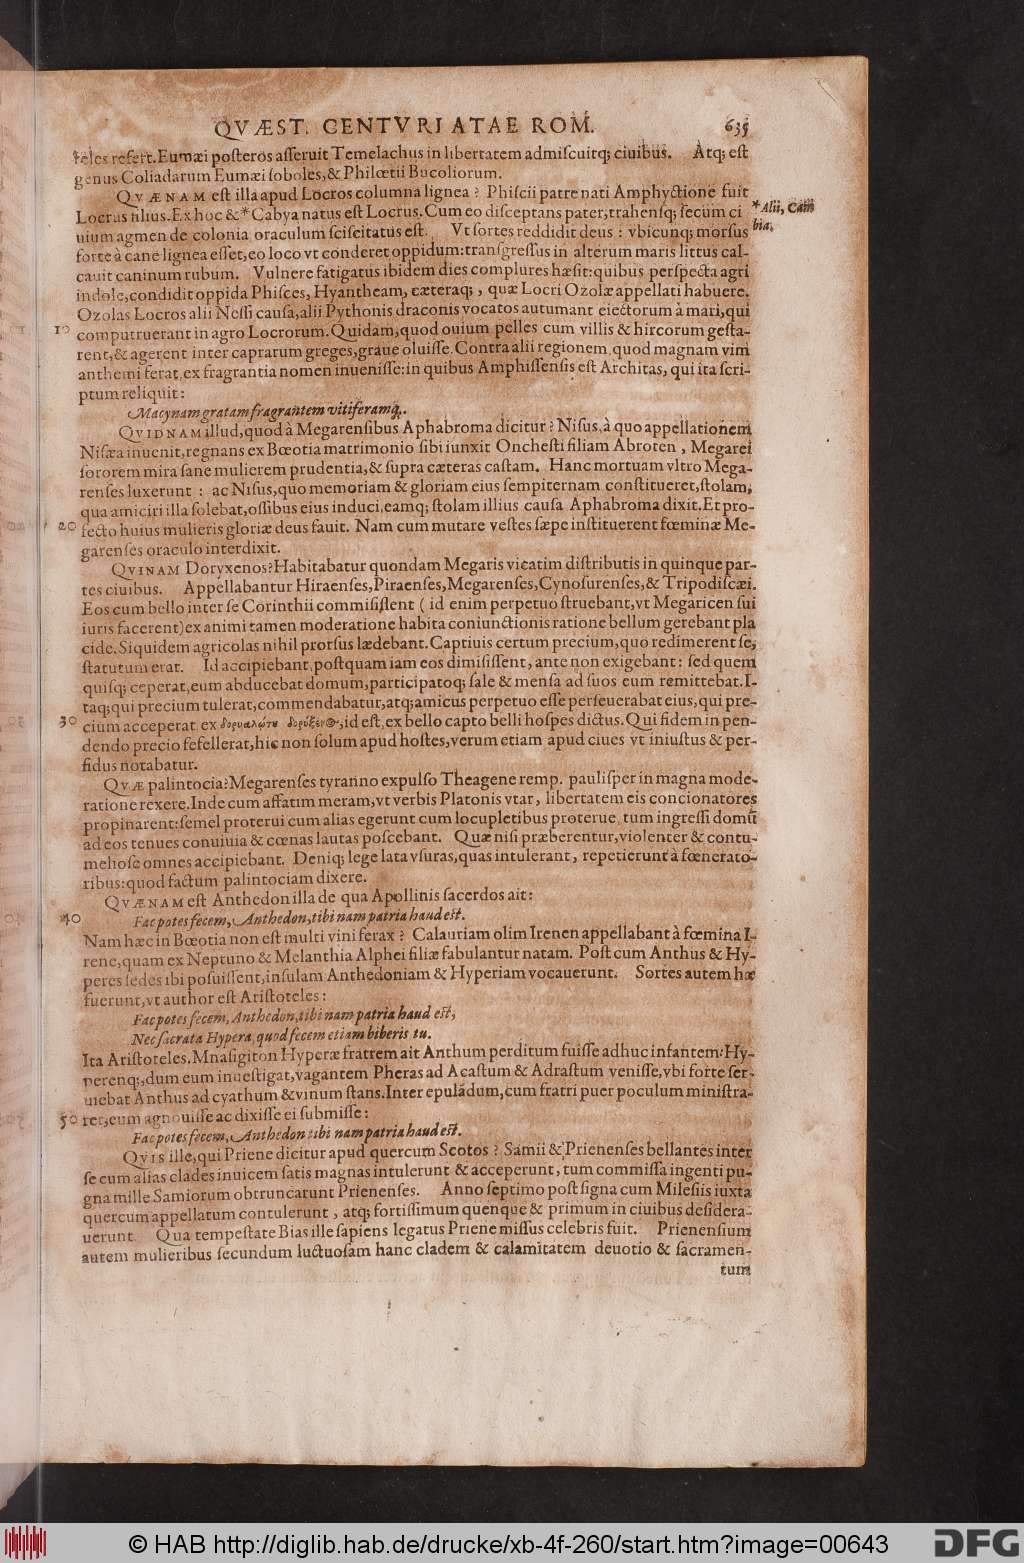 QVÆST. CENTVRIATAE ROM. 635
teles refert. Eumæi posteros asseruit Temelachus in libertatem admiscuitq; ciuibus. Atq; est
genus Coliadarum Eumæi soboles, & Philœtii Bucoliorum.
QVÆNAM est illa apud Locros columna lignea? Phiscii patre nati Amphyctione fuit
Locrus filius. Ex hoc & * Cabya natus est Locrus. Cum eo disceptans pater, trahensq; secum ci
*Alii, Cam
bia.
uium agmen de colonia oraculum sciscitatus est. Vt sortes reddidit deus: vbicunq; morsus
forte à cane lignea esset, eo loco vt conderet oppidum: transgressus in alterum maris littus cal-
cauit caninum rubum. Vulnere fatigatus ibidem dies complures hæsit: quibus perspecta agri
indole, condidit oppida Phisces, Hyantheam, cæteraq;, quæ Locri Ozolæ appellati habuere.
Ozolas Locros alii Nessi causa, alii Pythonis draconis vocatos autumant eiectorum à mari, qui
10 computruerant in agro Locrorum. Quidam, quod ouium pelles cum villis & hircorum gesta-
rent, & agerent inter caprarum greges, graue oluisse. Contra alii regionem quod magnam vim
anthemi ferat, ex fragrantia nomen inuenisse: in quibus Amphissensis est Architas, qui ita scri-
ptum reliquit:
Macynam gratam fragrantem vitiferamq;.
QVIDNAM illud, quod à Megarensibus Aphabroma dicitur? Nisus, à quo appellationem
Nisæa inuenit, regnans ex Bœotia matrimonio sibi iunxit Onchesti filiam Abroten, Megarei
sororem mira sane mulierem prudentia, & supra cæteras castam. Hanc mortuam vltro Mega-
renses luxerunt: ac Nisus, quo memoriam & gloriam eius sempiternam constitueret, stolam,
qua amiciri illa solebat, ossibus eius induci, eamq; stolam illius causa Aphabroma dixit. Et pro-
20 fecto huius mulieris gloriæ deus fauit. Nam cum mutare vestes sæpe instituerent fœminæ Me-
garenses oraculo interdixit.
QVINAM Doryxenos? Habitabatur quondam Megaris vicatim distributis in quinque par-
tes ciuibus. Appellabantur Hiraenses, Piraenses, Megarenses, Cynosurenses, & Tripodiscæi.
Eos cum bello inter se Corinthii commisissent (id enim perpetuo struebant, vt Megaricen sui
iuris facerent) ex animi tamen moderatione habita coniunctionis ratione bellum gerebant pla
cide. Siquidem agricolas nihil prorsus lædebant. Captiuis certum precium, quo redimerent se,
statutum erat. Id accipiebant, postquam iam eos dimisissent, ante non exigebant: sed quem
quisq; ceperat, eum abducebat domum, participatoq; sale & mensa ad suos eum remittebat. I-
taq; qui precium tulerat, commendabatur, atq; amicus perpetuo esse perseuerabat eius, qui pre-
30 cium acceperat ex δορυαλώτου δορύξενος, id est, ex bello capto belli hospes dictus. Qui fidem in pen-
dendo precio fefellerat, hic non solum apud hostes, verum etiam apud ciues vt iniustus & per-
fidus notabatur.
QVÆ palintocia? Megarenses tyranno expulso Theagene remp. paulisper in magna mode-
ratione rexere. Inde cum affatim meram, vt verbis Platonis vtar, libertatem eis concionatores
propinarent: semel proterui cum alias egerunt cum locupletibus proterue, tum ingressi domū
ad eos tenues conuiuia & cœnas lautas poscebant. Quæ nisi præberentur, violenter & contu-
meliose omnes accipiebant. Deniq; lege lata vsuras, quas intulerant, repetierunt à fœnerato-
ribus: quod factum palintociam dixere.
QVÆNAM est Anthedon illa de qua Apollinis sacerdos ait:
40 Fac potes fecem, Anthedon, tibi nam patria haud est.
Nam hæc in Bœotia non est multi vini ferax? Calauriam olim Irenen appellabant à fœmina I-
rene, quam ex Neptuno & Melanthia Alphei filiæ fabulantur natam. Post cum Anthus & Hy-
peres sedes ibi posuissent, insulam Anthedoniam & Hyperiam vocauerunt. Sortes autem hæ
fuerunt, vt author est Aristoteles:
Fac potes fecem, Anthedon, tibi nam patria haud est,
Nec sacrata Hypera, quod fecem etiam biberis tu.
Ita Aristoteles. Mnasigiton Hyperæ fratrem ait Anthum perditum fuisse adhuc infantem: Hy-
perenq;, dum eum inuestigat, vagantem Pheras ad Acastum & Adrastum venisse, vbi forte ser-
uiebat Anthus ad cyathum & vinum stans. Inter epulādum, cum fratri puer poculum ministra-
50 ret, eum agnouisse ac dixisse ei submisse:
Fac potes fecem, Anthedon tibi nam patria haud est.
QVIS ille, qui Priene dicitur apud quercum Scotos? Samii & Prienenses bellantes inter
se cum alias clades inuicem satis magnas intulerunt & acceperunt, tum commissa ingenti pu-
gna mille Samiorum obtruncarunt Prienenses. Anno septimo post signa cum Milesiis iuxta
quercum appellatum contulerunt, atq; fortissimum quenque & primum in ciuibus desidera-
uerunt Qua tempestate Bias ille sapiens legatus Priene missus celebris fuit. Prienensium
autem mulieribus secundum luctuosam hanc cladem & calamitatem deuotio & sacramen-
tum
© HAB http://diglib.hab.de/drucke/xb-4f-260/start.htm?image=00643
DFG